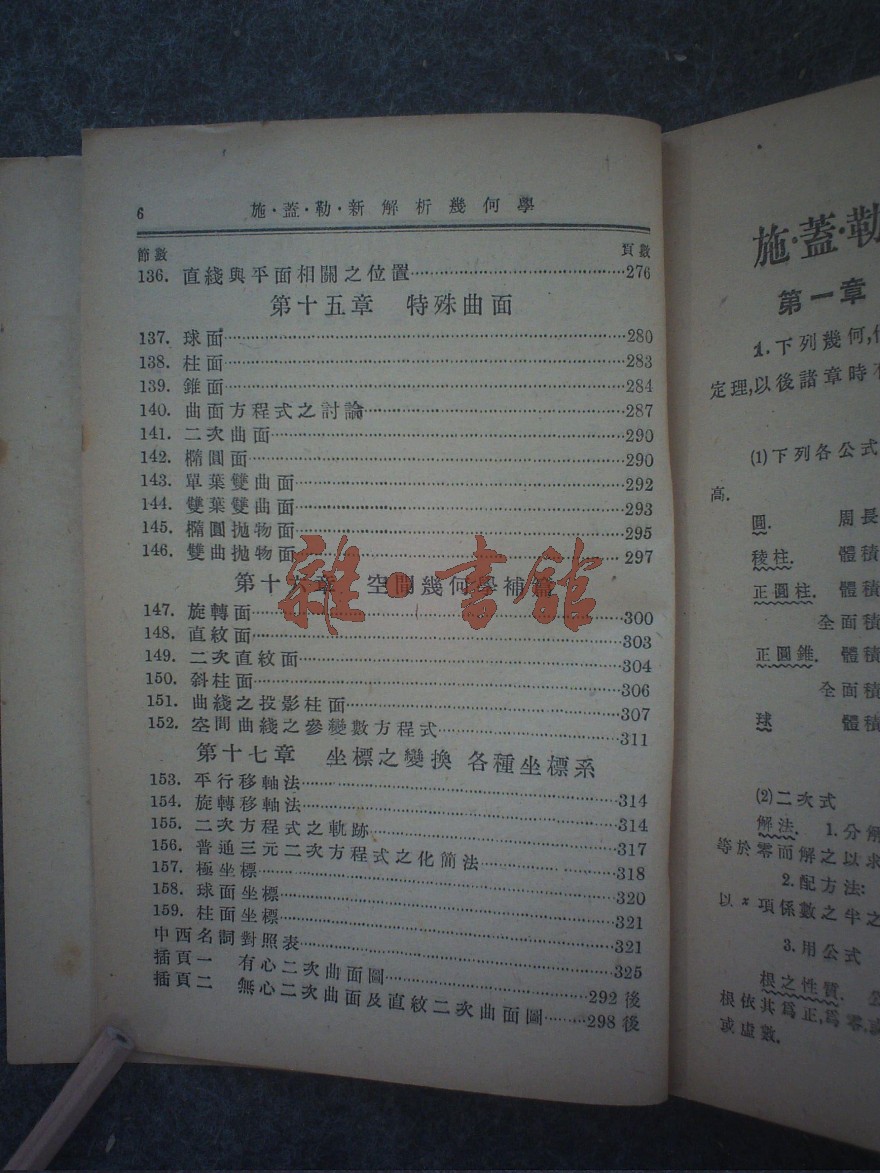 6 施·蓋·勒·新解析幾何學
節數 頁數
136. 直綫與平面相關之位置 276
第十五章 特殊曲面
137. 球面 280
138. 柱面 283
139. 錐面 284
140. 曲面方程式之討論 287
141. 二次曲面 290
142. 橢圓面 290
143. 單葉雙曲面 292
144. 雙葉雙曲面 293
145. 橢圓拋物面 295
146. 雙曲拋物面 297
雜·書館
第十六章 空間幾何學補篇
147. 旋轉面 300
148. 直紋面 303
149. 二次直紋面 304
150. 斜柱面 306
151. 曲綫之投影柱面 307
152. 空間曲綫之參變數方程式 311
第十七章 坐標之變換 各種坐標系
153. 平行移軸法 314
154. 旋轉移軸法 314
155. 二次方程式之軌跡 317
156. 普通三元二次方程式之化簡法 318
157. 極坐標 320
158. 球面坐標 321
159. 柱面坐標 321
中西名詞對照表 325
插頁一 有心二次曲面圖 292後
插頁二 無心二次曲面及直紋二次曲面圖 298後
施·蓋·勒
第一章
1. 下列幾何,
定理,以後諸章時
(1)下列各公式
高.
圓. 周長
稜柱. 體積
正圓柱. 體積
全面積
正圓錐. 體積
全面積
球 體積
(2)二次式
解法. 1.分解
等於零而解之以求
2.配方法:
以 x 項係數之半之
3.用公式
根之性質.
根依其爲正,爲零,或
或虛數.